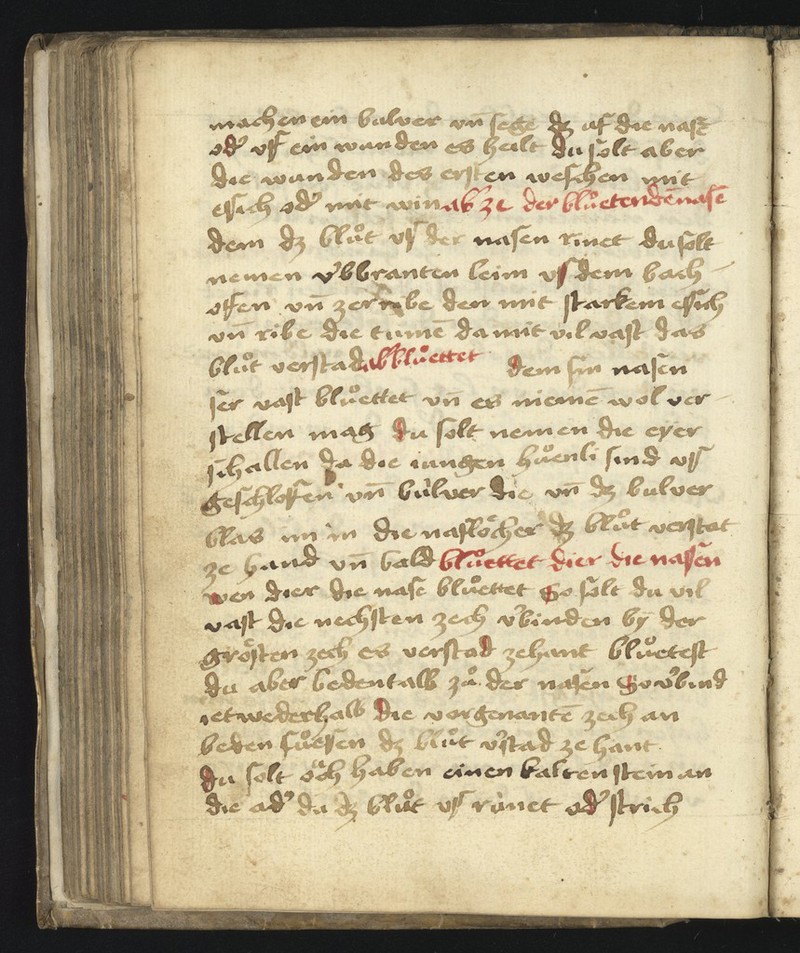 machen ein bulver vn̄ sege dz uf die nase
od' vff ein wunden es heilt du solt aber
die wunden des ersten weschen mit
essich od' mit win ab ze der bluͦetenden nase
dem dz bluͦt vs der nasen rinet du solt
nemen v'bbranten leim vs dem bach-
offen vn̄ zerribe den mit starkem essich
vn̄ ribe die tumē da mit vil vast das
bluͦt verstad ab bluͦettet dem sin nasen
ser vast bluͦettet vn̄ es niemē wol ver-
stellen mag du solt nemen die eyer
schallen da die iungen huͦenli sind vss
geschloffen vn̄ bulver die vn̄ dz bulver
blas im in die naslöcher dz bluͦt verstat
ze hand vn̄ bald bluͦettet dier die nassen
wen dier die nase bluͦettet So solt du vil
vast die nechsten zech v'binden by der
grösten zech es verstad zehant bluͦetest
du aber bedentalb zuͦ der nasen So v'bind
ietwederhalb die vorgenantē zech an
beden fuͦessen dz bluͦt v'stad ze hant
du solt öch haben einen kalten stein an
die ad' da dz bluͦt vss rinet od' strich